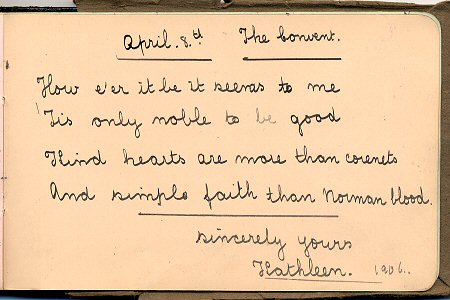 April. 8.th The Convent.
How e'er it be it seems to me
'Tis only noble to be good
Kind hearts are more than corenets
And simple faith than Norman blood.
sincerely yours
Kathleen. 1906.